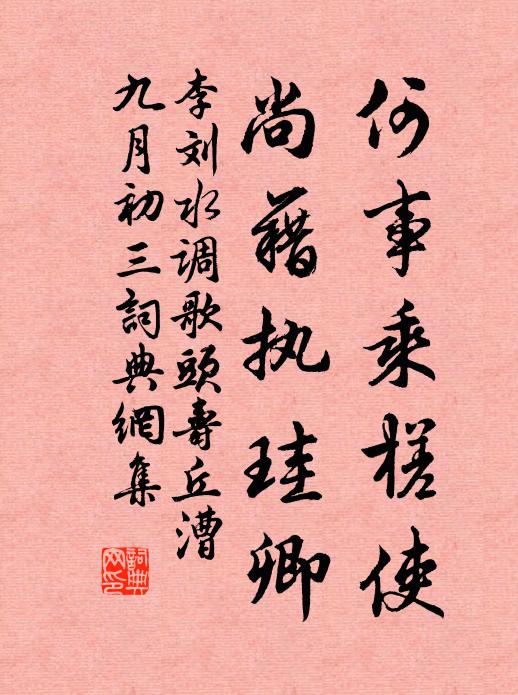 何事乘槎使
尚藉执珪卿
李刘水调歌头寿丘漕
九月初三詞典網集
詞典网印